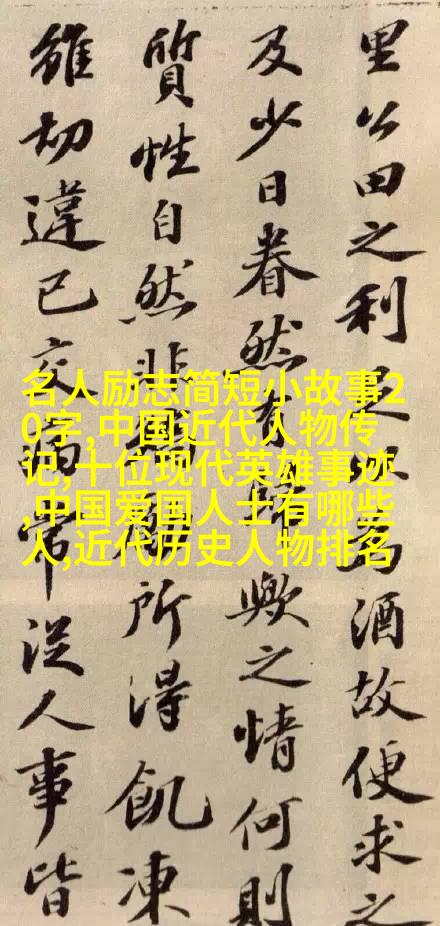 里公田之利足以為酒故便求之
及少日眷然有歸歟之情何則
質性自然非矯勵所得飢凍
雖切違己交病常從人事皆
名人励志简短小故事2
0字,中国近代人物传
记,十位现代英雄事迹
,中国爱国人士有哪些
人,近代历史人物排名